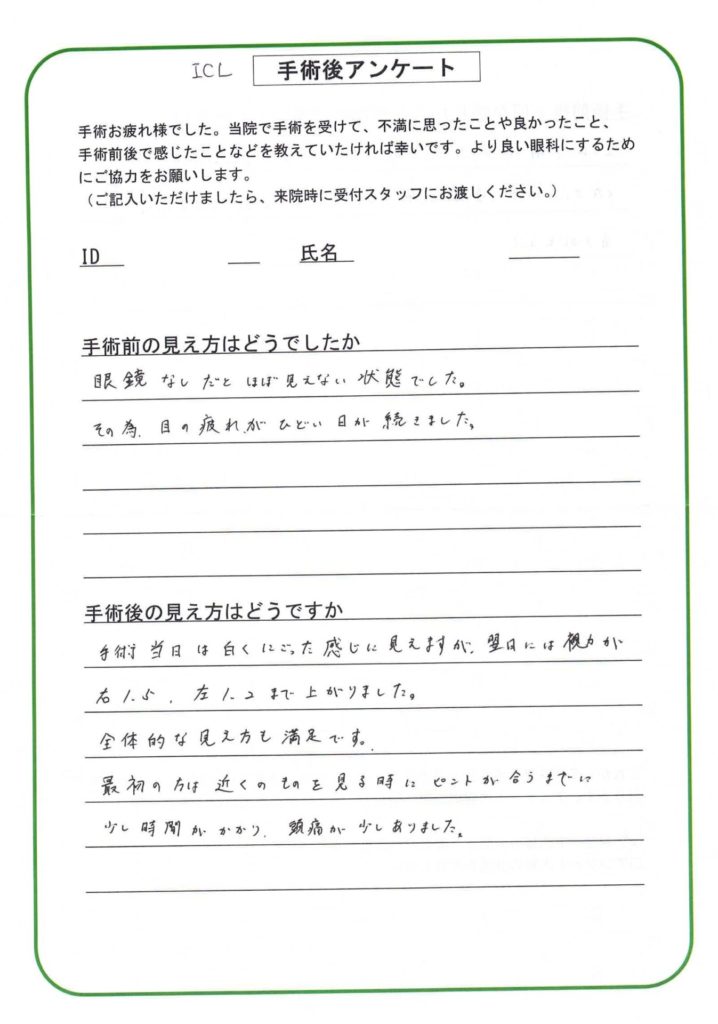 ICL 手術後アンケート
手術お疲れ様でした。当院で手術を受けて、不満に思ったことや良かったこと、
手術前後で感じたことなどを教えていたければ幸いです。より良い眼科にするため
にご協力をお願いします。
（ご記入いただけましたら、来院時に受付スタッフにお渡しください。）
ID 氏名
手術前の見え方はどうでしたか
眼鏡なしだとほぼ見えない状態でした。
その為、目の疲れがひどい日が続きました。
手術後の見え方はどうですか
手術当日は白くにごった感じに見えますが、翌日には視力が
右1.5、左1.2まで上がりました。
全体的な見え方も満足です。
最初の方は近くのものを見る時にピントが合うまでに
少し時間がかかり、頭痛が少しありました。